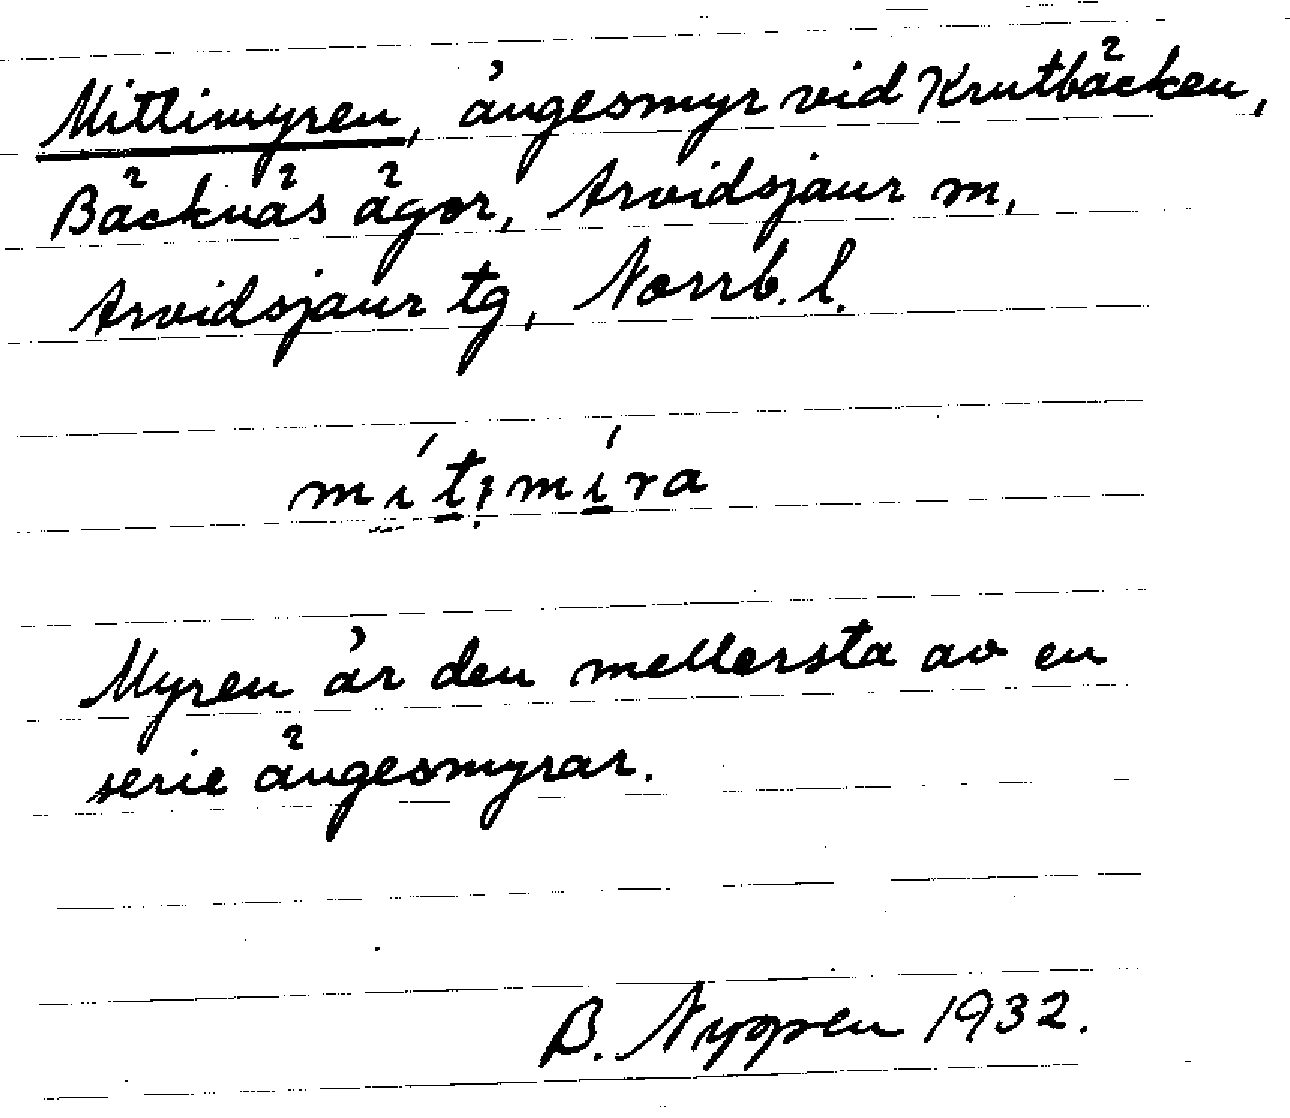 Mittimyren, ängesmyr vid Krutbäcken,
Bäcknäs ägor, Arvidsjaur sn,
Arvidsjaur tg, Norrb. l.
Myren är den mellersta av en
serie ängesmyrar.
B. Nygren 1932.